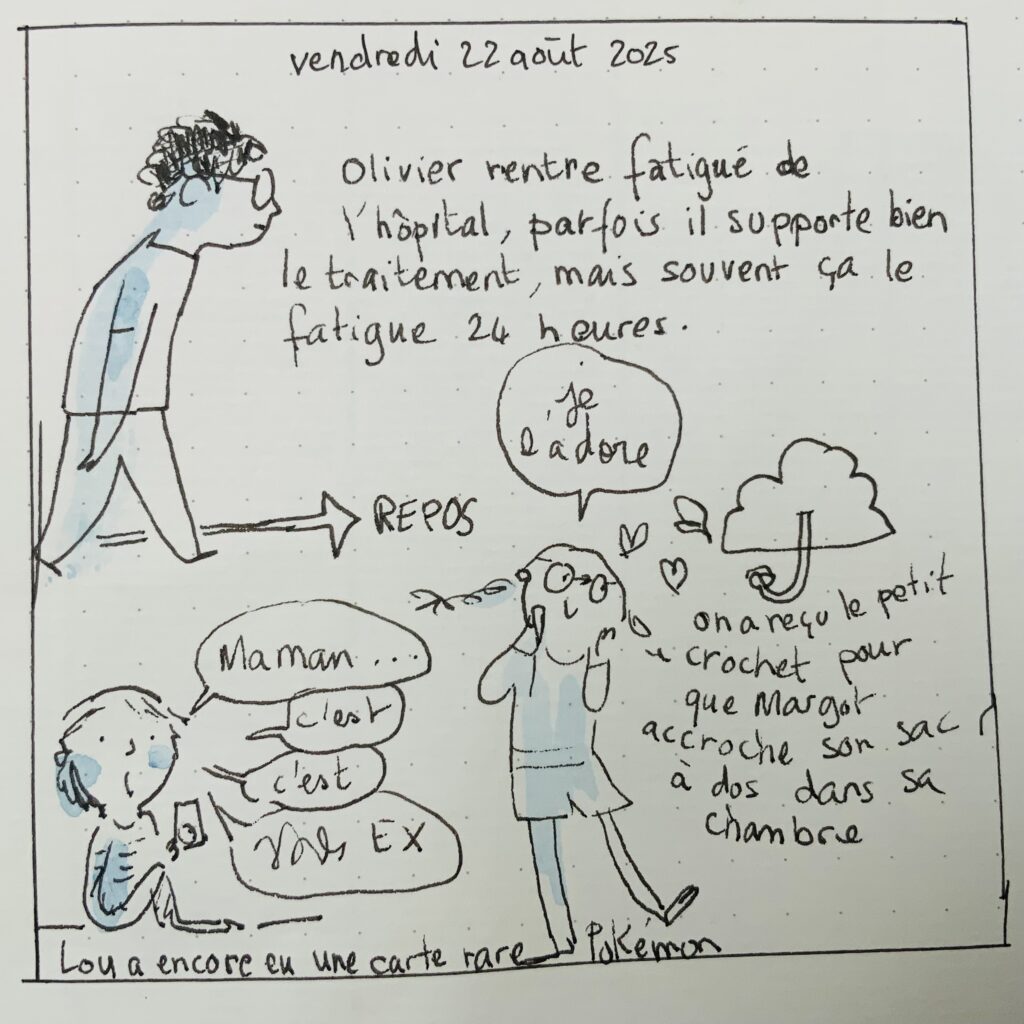 vendredi 22 août 2025
Olivier rentre fatigué de
l'hôpital, parfois il supporte bien
le traitement, mais souvent ça le
fatigue 24 heures.
REPOS
je
l'adore
on a reçu le petit
crochet pour
que Margot
accroche son sac
à dos dans sa
chambre
Maman ...
c'est
c'est
EX
Lou a encore eu une carte rare Pokémon